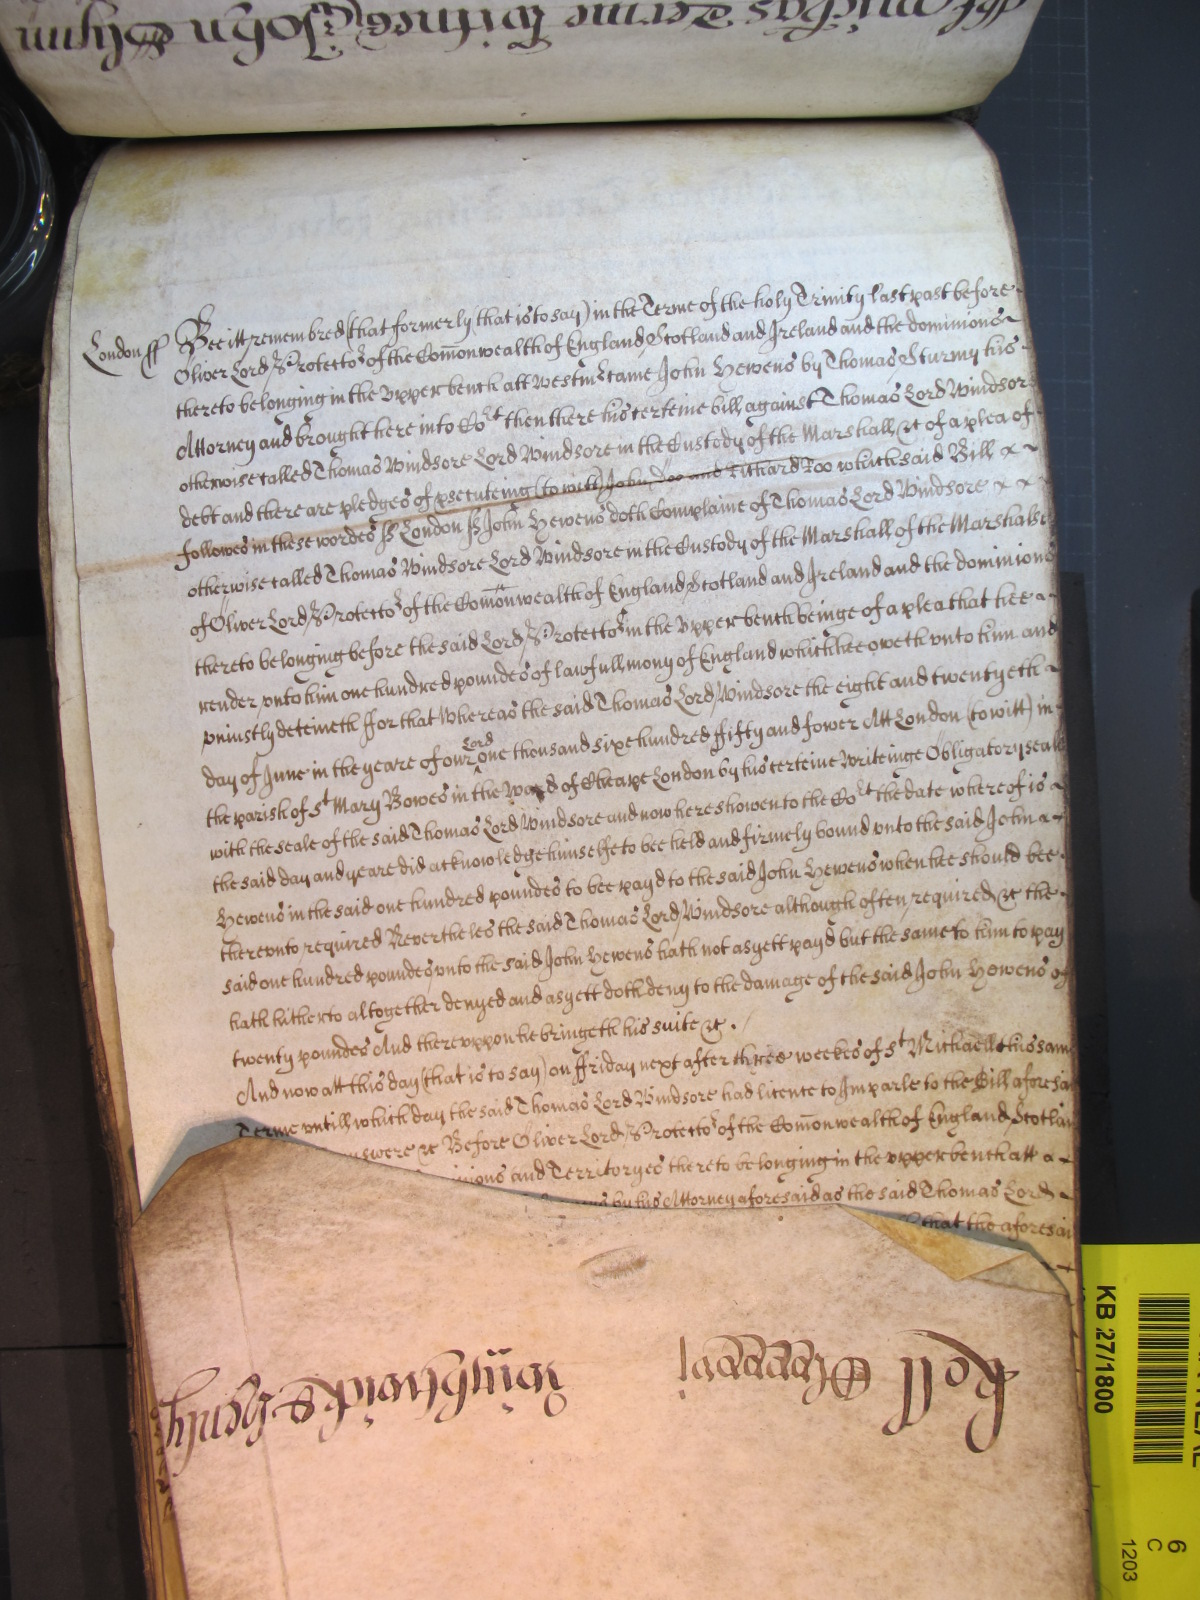 Michas Terme Witnes John Glynn
London ss Bee itt remembred (that formerly that is to say) in the Terme of the holy Trinity last past before
Oliver Lord Protector of the Com̄onwealth of England Scotland and Ireland and the dominions
thereto belonging in the upper bench att Westm̄ came John Hewens by Thomas Sturmy his
Attorney and brought here into Cort then there his certeine bill against Thomas Lord Windsor
otherwise called Thomas Windsore Lord Windsore in the Custody of the Marshall &c of a plea of
debt and there are pledges of psecuteing (to witt) John Doo and Richard Roo which said Bill
followes in these wordes ss London ss John Hewens doth Complaine of Thomas Lord Windsore
otherwise called Thomas Windsore Lord Windsore in the Custody of the Marshall of the Marshalse
of Oliver Lord Protector of the Com̄onwealth of England Scotland and Ireland and the dominions
thereto belonging before the said Lord Protector in the upper bench beinge of a plea that hee
render unto him one hundred poundes of lawfull mony of England which hee oweth unto him and
uniustly deteineth ffor that whereas the said Thomas Lord Windsore the eight and twentyeth
day of June in the yeare of our Lord one thousand sixe hundred ffifty and fower Att London (to witt) in
the parish of St Mary Bowes in the Ward of Cheape London by his certeine Writeinge Obligatory seal
with the seale of the said Thomas Lord Windsore and now here showen to the Cort the date whereof is
the said day and yeare did acknowledge himselfe to bee held and firmely bound unto the said John
Hewens in the said one hundred poundes to bee payd to the said John Hewens when hee should bee
thereunto required Neverthelес the said Thomas Lord Windsore although often required &c the
said one hundred poundes unto the said John Hewens hath not as yett payd but the same to him to pay
hath hitherto altogether denyed and as yett doth deny to the damage of the said John Hewens of
twenty poundes And thereuppon he bringeth his suite &c.
And now att this day (that is to say) on ffriday next after three weekes of St Michaell this same
Terme untill which day the said Thomas Lord Windsore had licence to Imparle to the Bill aforesai
nswere &c Before Oliver Lord Protector of the Com̄onwealth of England Scotlan
inions and Territoryes thereto belonging in the upper bench att
by his Attorney aforesaid as the said Thomas Lord
that the aforesai
Roll
KB 27/1800
6
C
1203